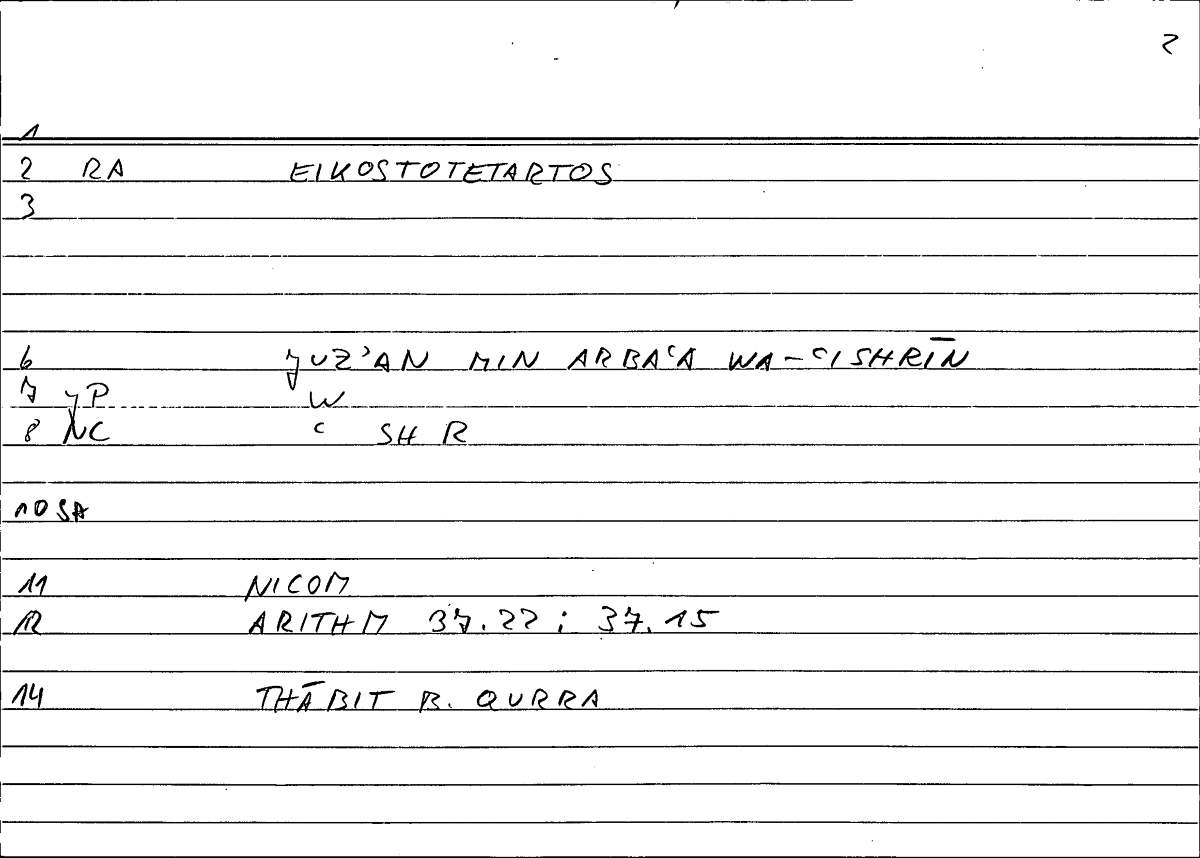 2
1
2 RA EIKOSTOTETARTOS
3
6 JUZ’AN MIN ARBAʿA WA-ʿISHRĪN
7 JP W
8 NC ʿ SH R
10 SA
11 NICOM
12 ARITHM 37.22 ; 37.15
14 THĀBIT B. QURRA